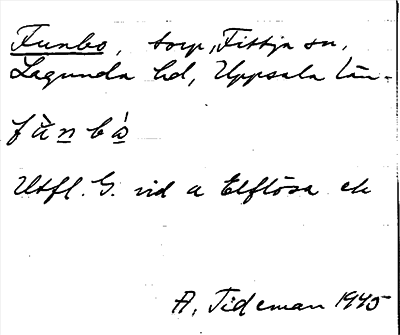 Funbo, torp, Fittja sn,
Lagunda hd, Uppsala län.
Utfl. G. vid a
A. Tideman 1945